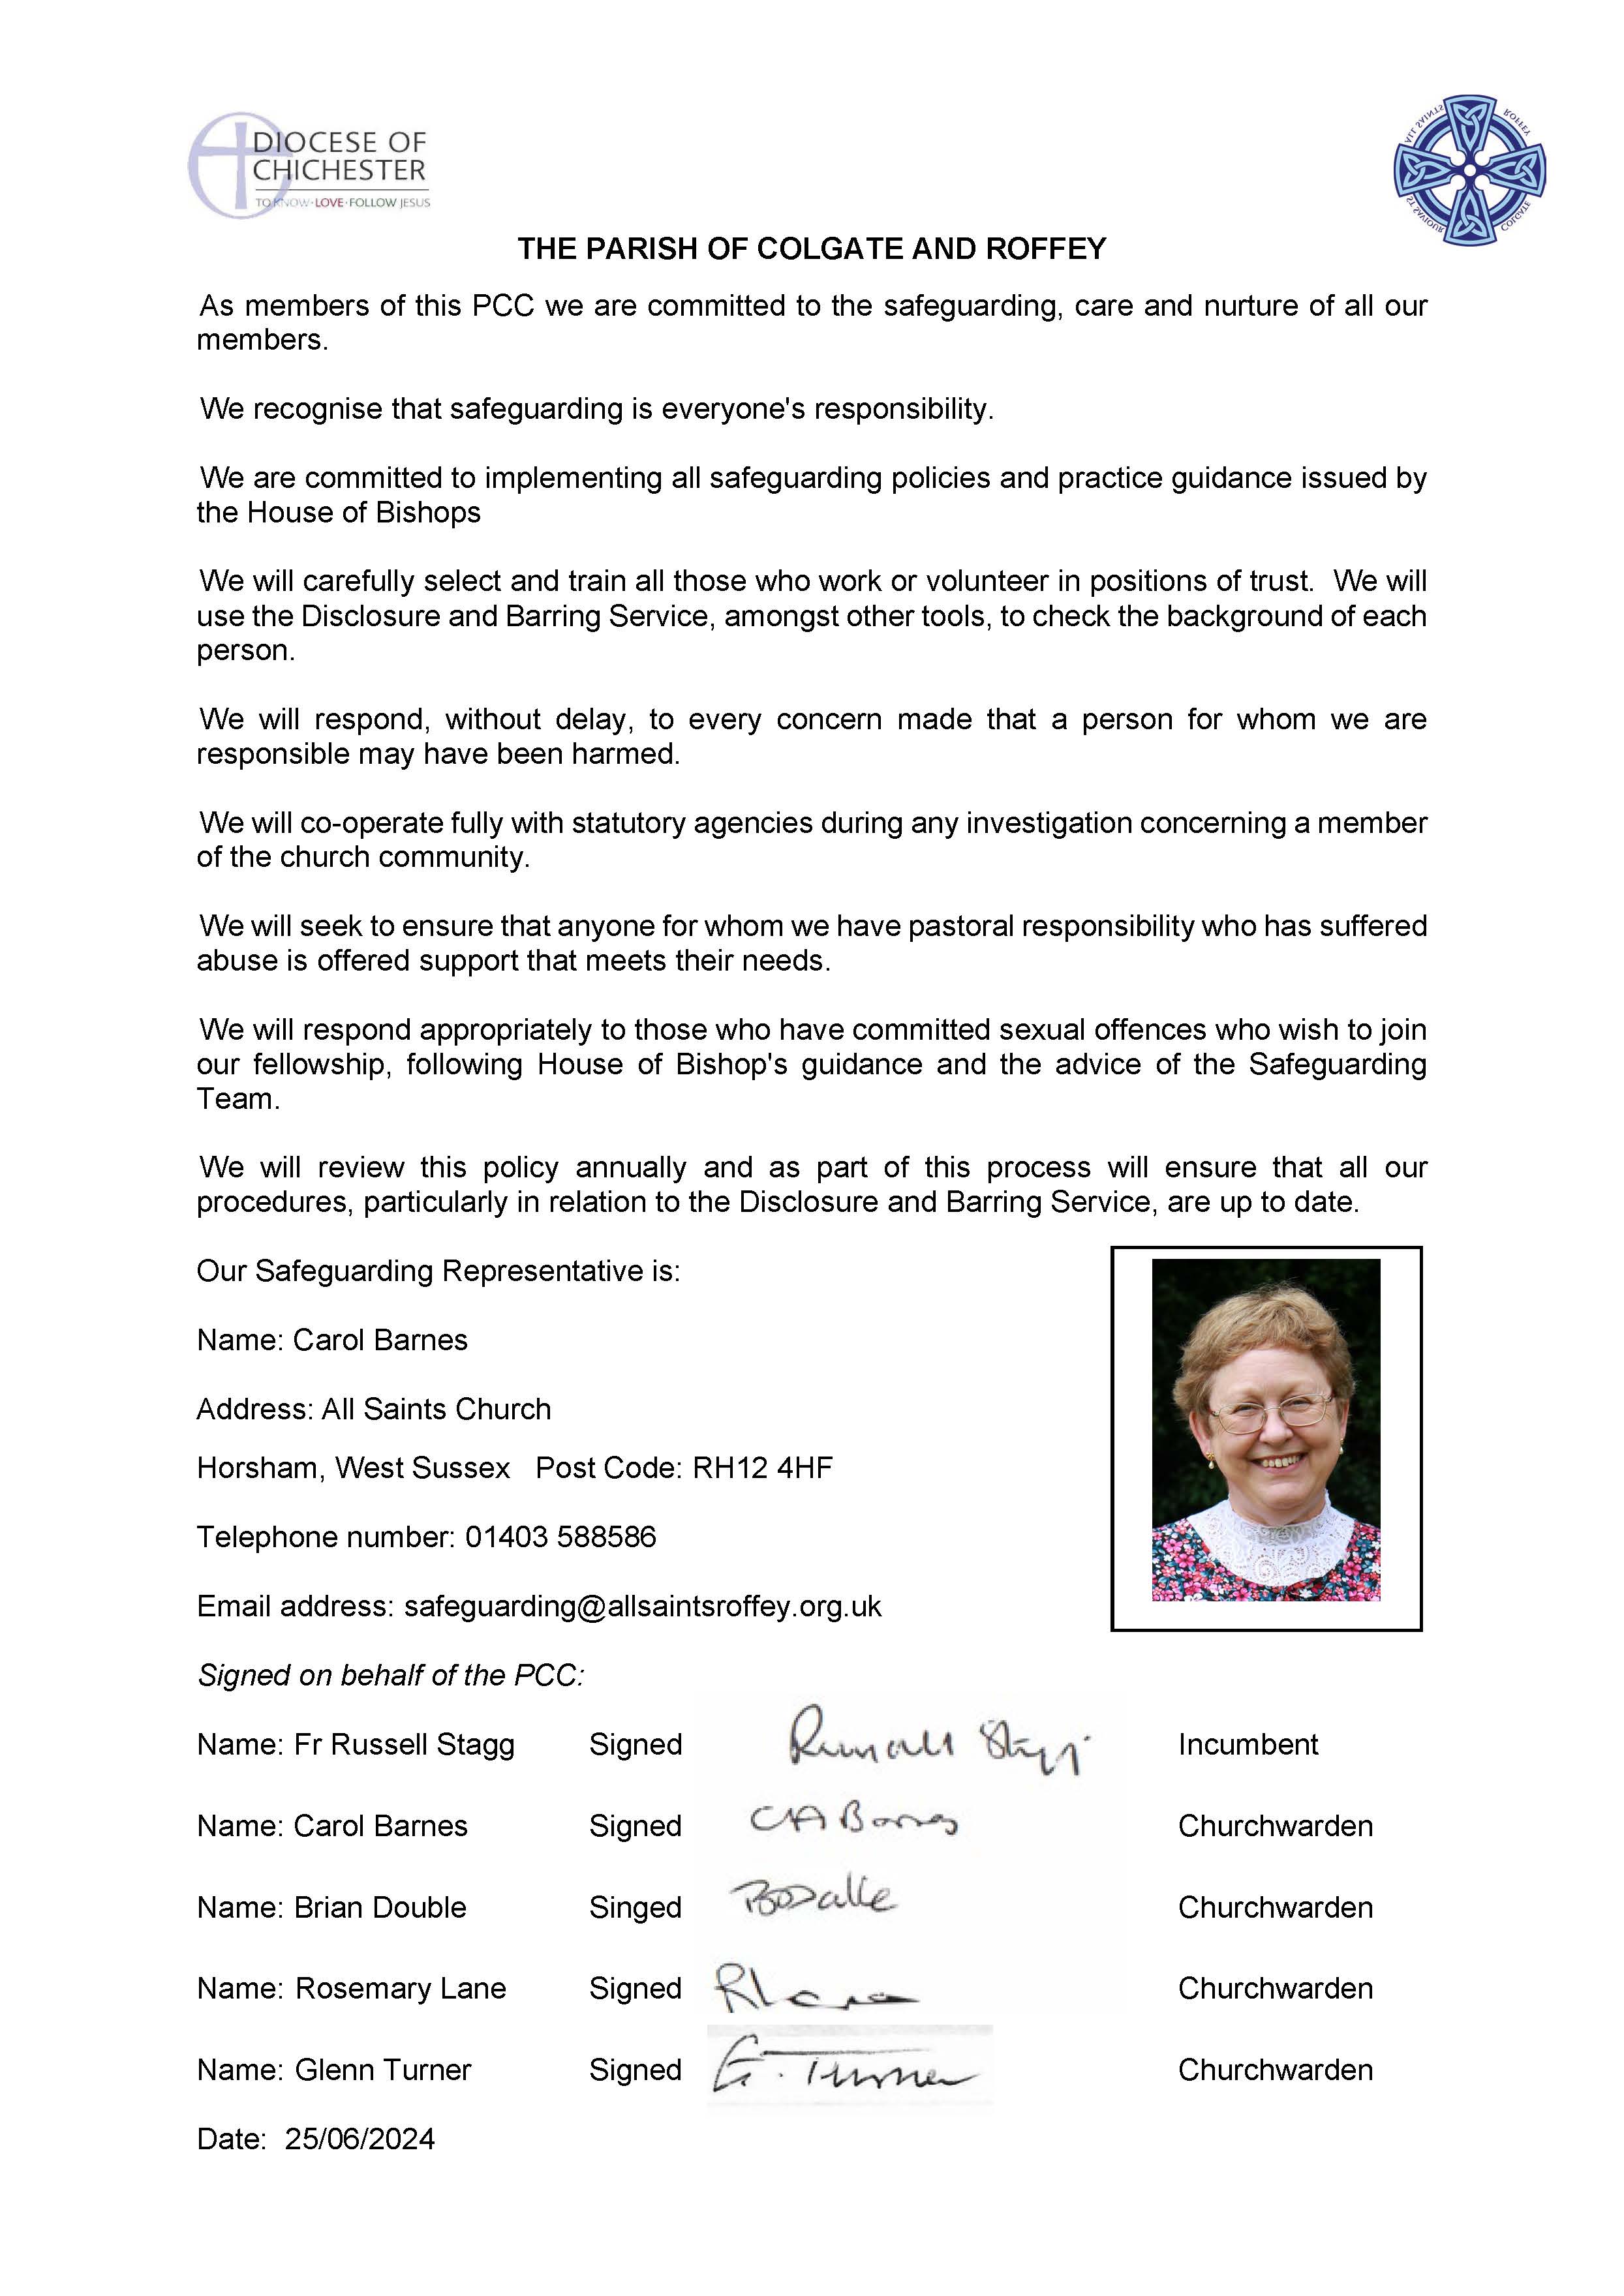 DIOCESE OF
CHICHESTER
TO KNOW · LOVE · FOLLOW JESUS
ALL SAINTS ROFFEY
ST SAVIOUR COLGATE
THE PARISH OF COLGATE AND ROFFEY
As members of this PCC we are committed to the safeguarding, care and nurture of all our
members.
We recognise that safeguarding is everyone's responsibility.
We are committed to implementing all safeguarding policies and practice guidance issued by
the House of Bishops
We will carefully select and train all those who work or volunteer in positions of trust. We will
use the Disclosure and Barring Service, amongst other tools, to check the background of each
person.
We will respond, without delay, to every concern made that a person for whom we are
responsible may have been harmed.
We will co-operate fully with statutory agencies during any investigation concerning a member
of the church community.
We will seek to ensure that anyone for whom we have pastoral responsibility who has suffered
abuse is offered support that meets their needs.
We will respond appropriately to those who have committed sexual offences who wish to join
our fellowship, following House of Bishop's guidance and the advice of the Safeguarding
Team.
We will review this policy annually and as part of this process will ensure that all our
procedures, particularly in relation to the Disclosure and Barring Service, are up to date.
Our Safeguarding Representative is:
Name: Carol Barnes
Address: All Saints Church
Horsham, West Sussex Post Code: RH12 4HF
Telephone number: 01403 588586
Email address: safeguarding@allsaintsroffey.org.uk
Signed on behalf of the PCC:
Name: Fr Russell Stagg Signed Russell Stagg Incumbent
Name: Carol Barnes Signed CA Barnes Churchwarden
Name: Brian Double Singed Churchwarden
Name: Rosemary Lane Signed R Lane Churchwarden
Name: Glenn Turner Signed G. Turner Churchwarden
Date: 25/06/2024